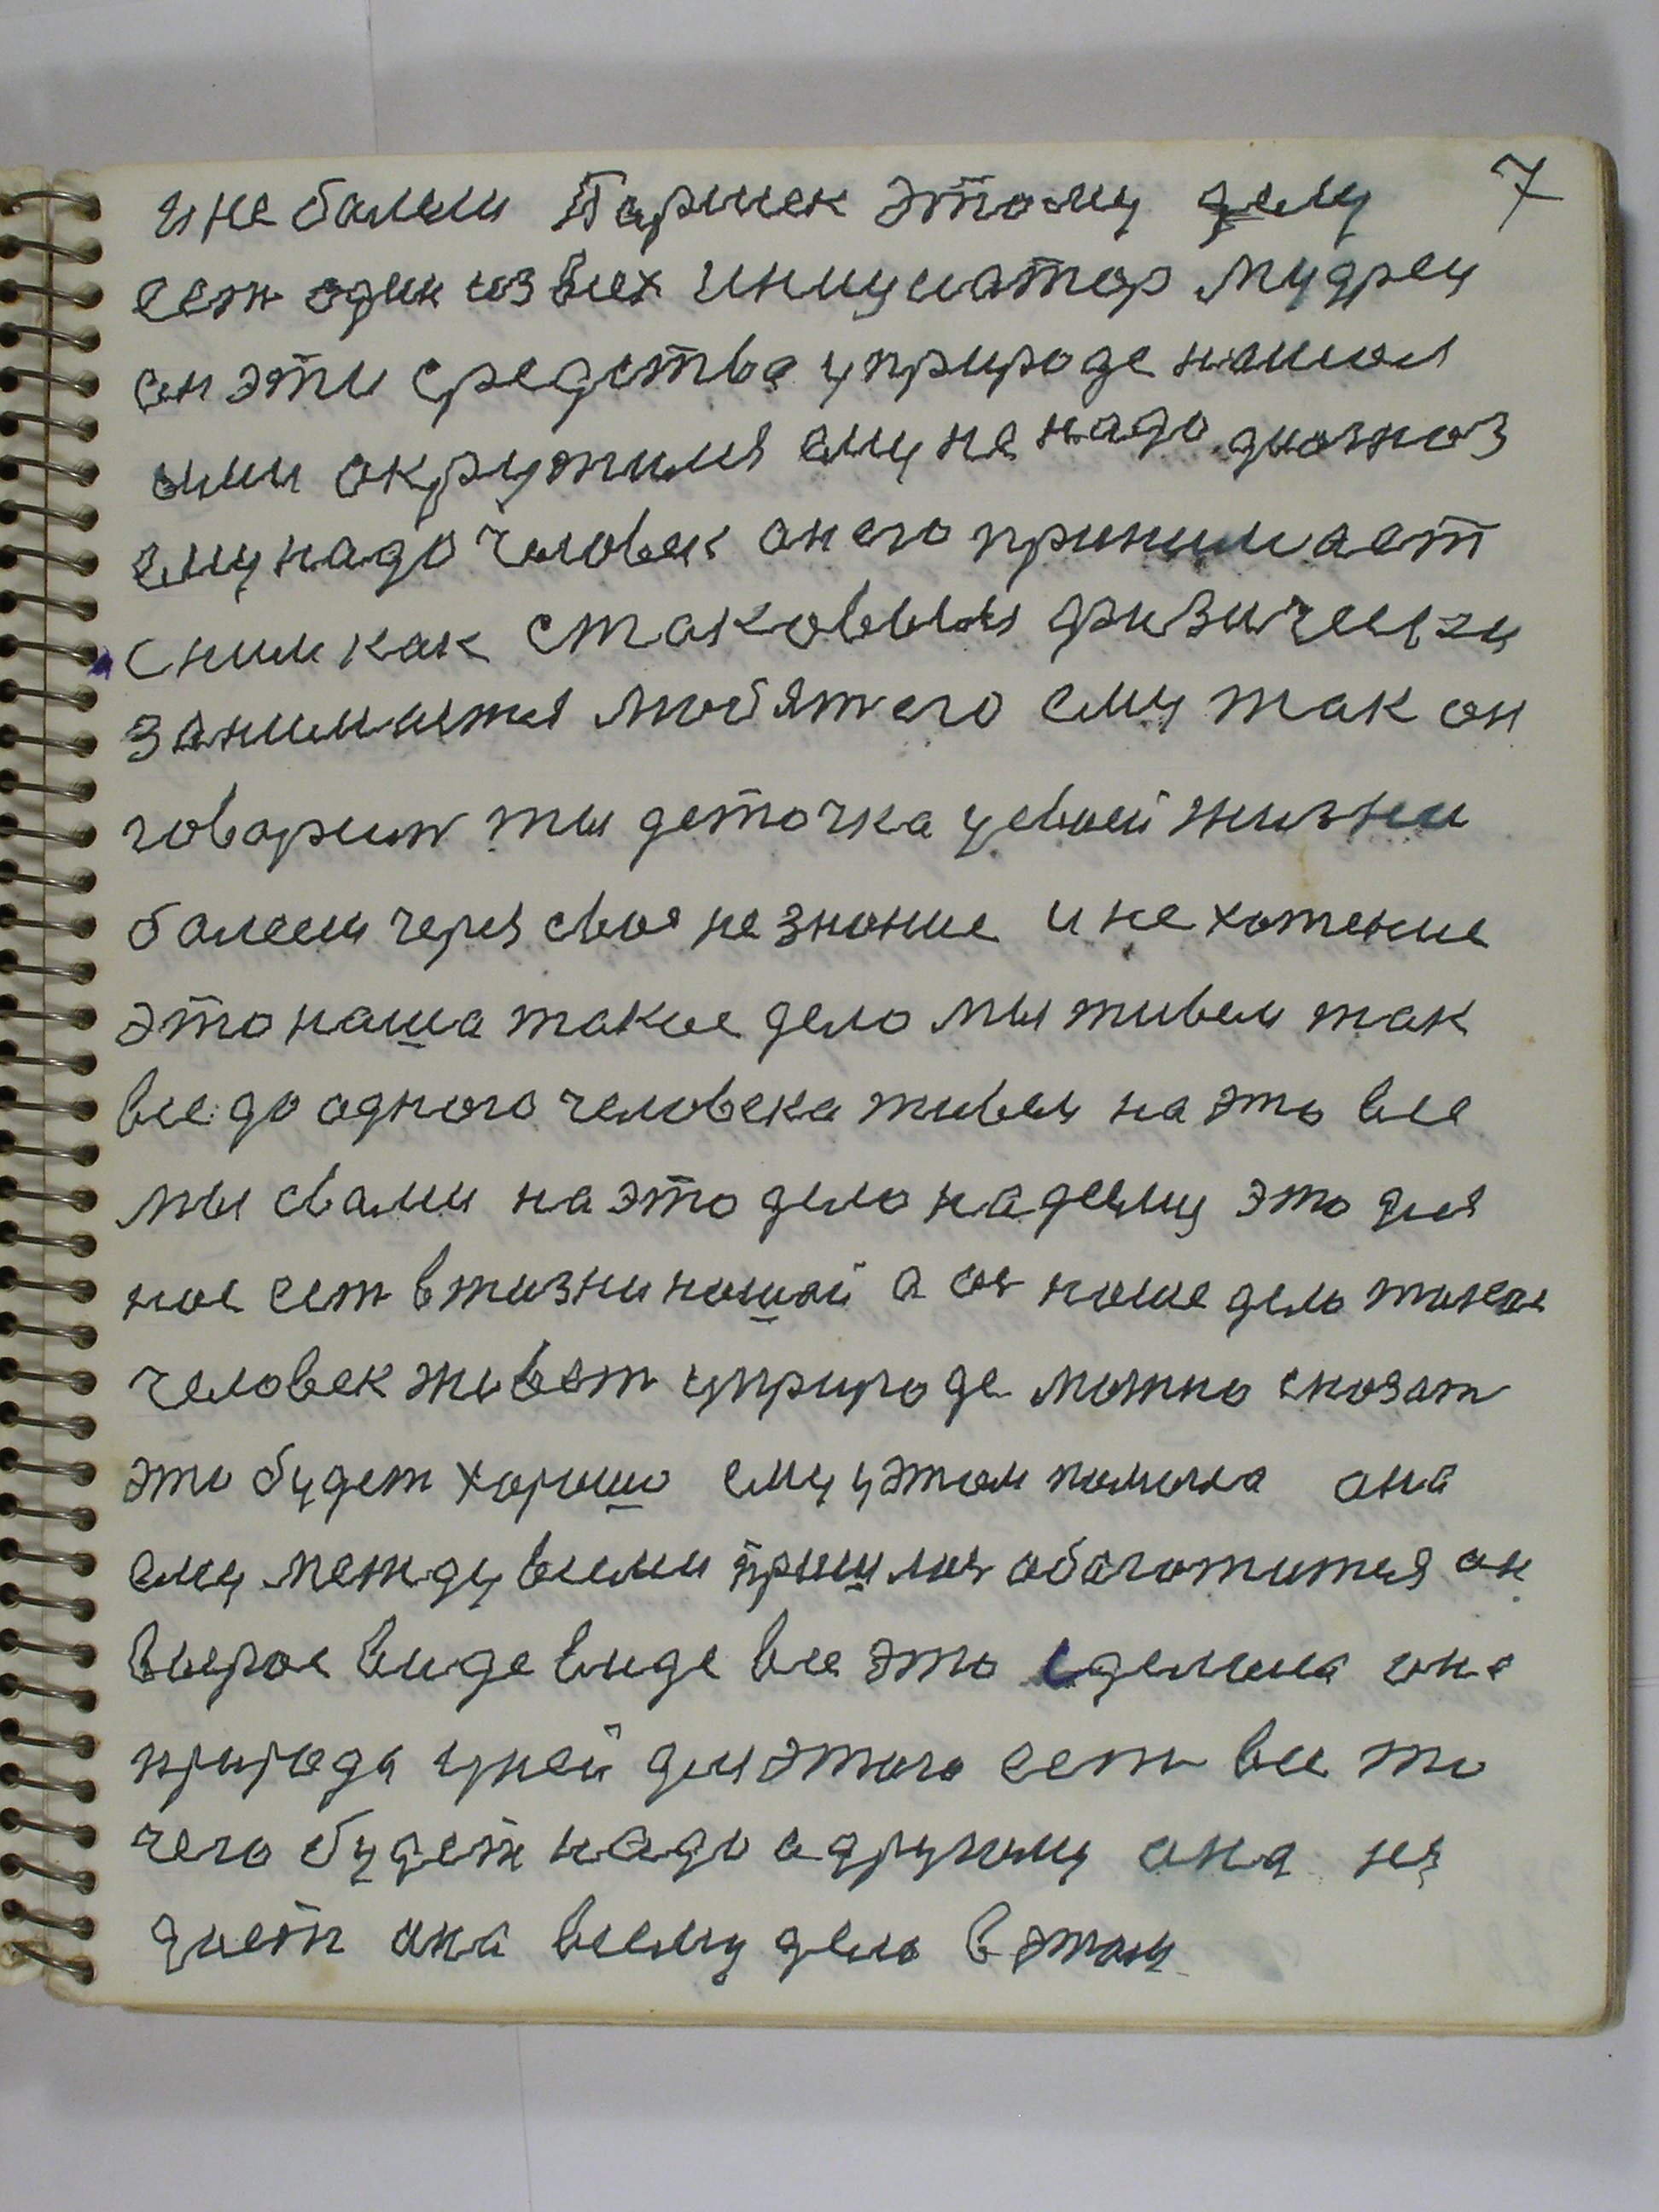 7
и не балели Паршек этому делу
ест один из всех инициатор мудрец
он эти средства у природе нашол
ими окружился ему не надо диагноз
ему надо человек он его принимает
с ним как стаковым физически
занимается любят его ему так он
говарит ты деточка у своей жизни
балееш через своя не знание и не хотение
это наша такое дело мы живем так
все до одного человека живем на это все
мы свами на это дело надеемц это для
нос ест в жизни нашай а он наше дело такое
человек живет у природе можно сказат
это будет хорошо ему у этом помочна она
ему между всеми пришлос обагатится он
в сырое виде виде все это сделала она
природа у ней для этого ест все то
чего будет надо а другому она не
дает она всему дело в этом